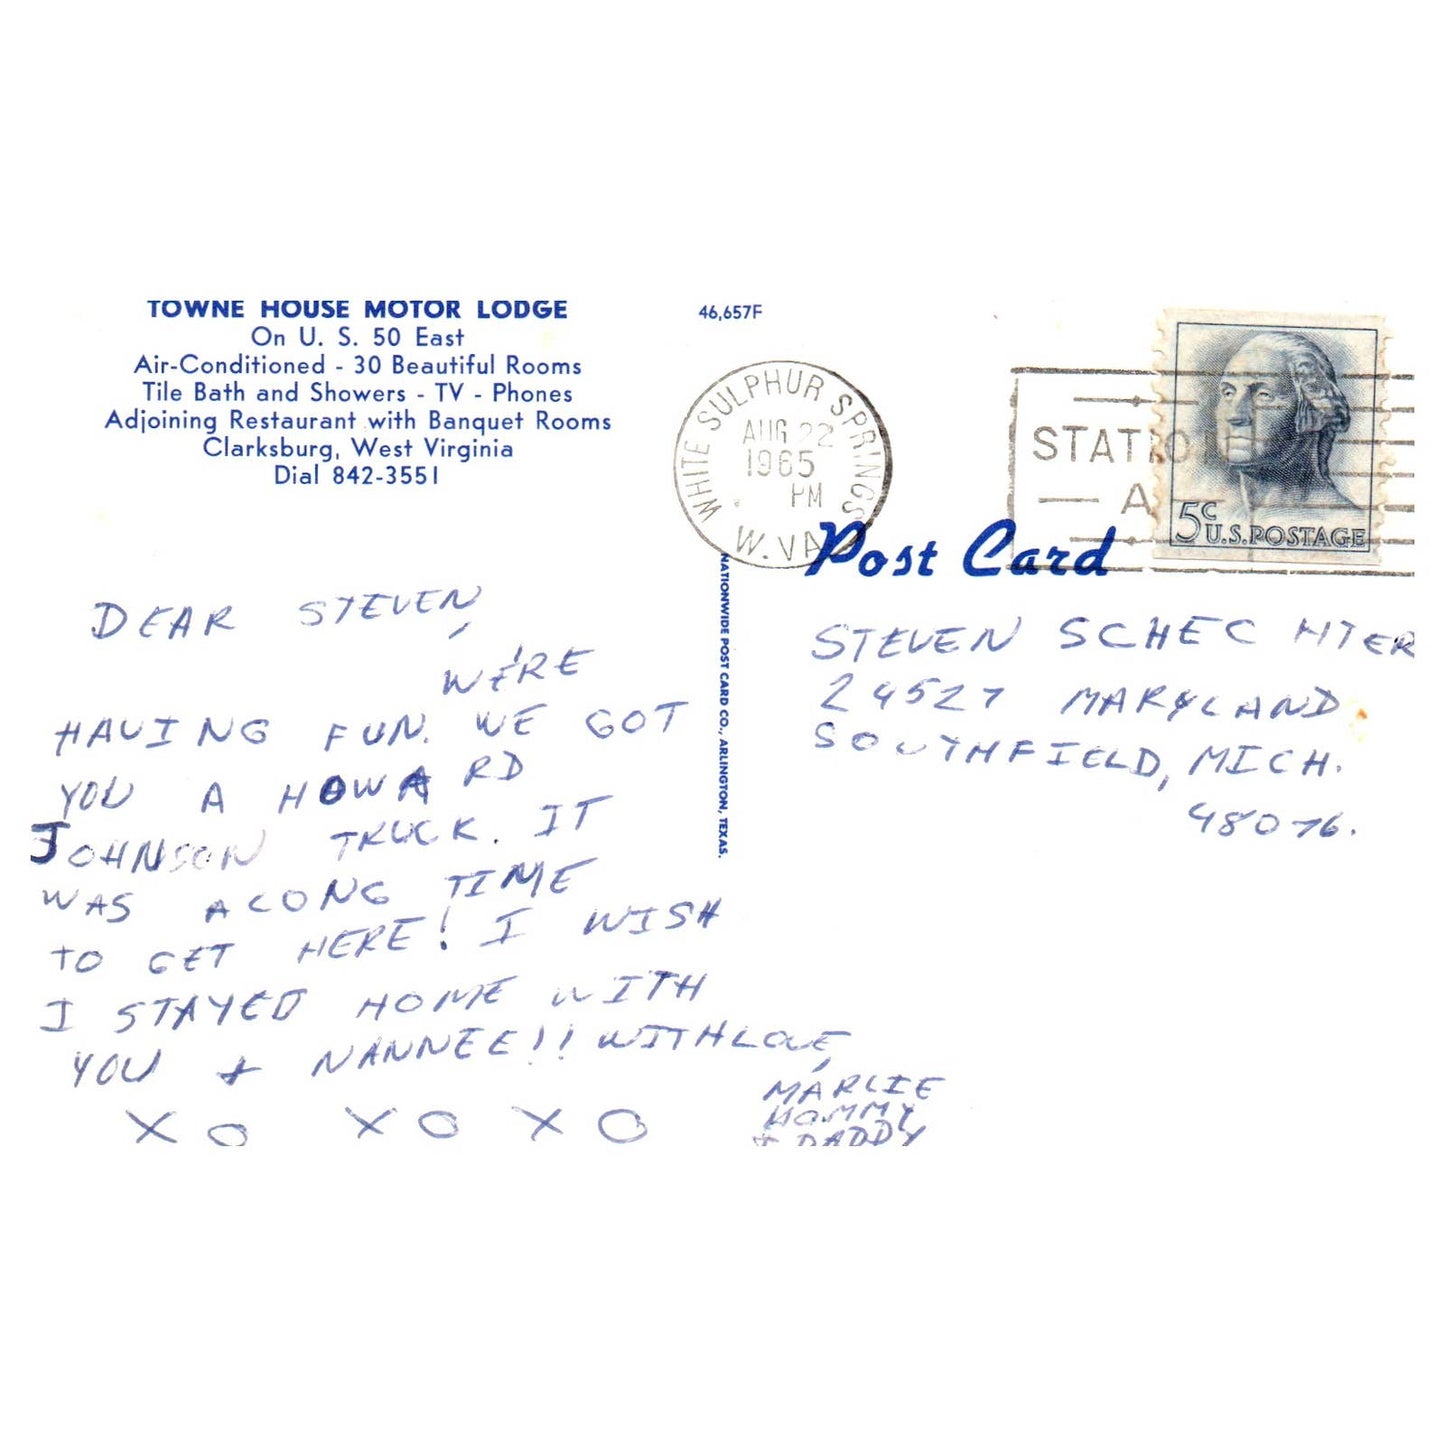 TOWNE HOUSE MOTOR LODGE
On U. S. 50 East
Air-Conditioned - 30 Beautiful Rooms
Tile Bath and Showers - TV - Phones
Adjoining Restaurant with Banquet Rooms
Clarksburg, West Virginia
Dial 842-3551
46,657F
WHITE SULPHUR SPRINGS
AUG 22
1965
PM
W. VA
5c U.S. POSTAGE
Post Card
NATIONWIDE POST CARD CO., ARLINGTON, TEXAS.
DEAR STEVEN,
WE'RE
HAVING FUN. WE GOT
YOU A HOWARD
JOHNSON TRUCK. IT
WAS A LONG TIME
TO GET HERE! I WISH
I STAYED HOME WITH
YOU + NANNEE!! WITH LOVE,
MARLIE
MOMMY
+ DADDY
XO XO XO
STEVEN SCHECHTER
24527 MARYLAND
SOUTHFIELD, MICH.
48076.